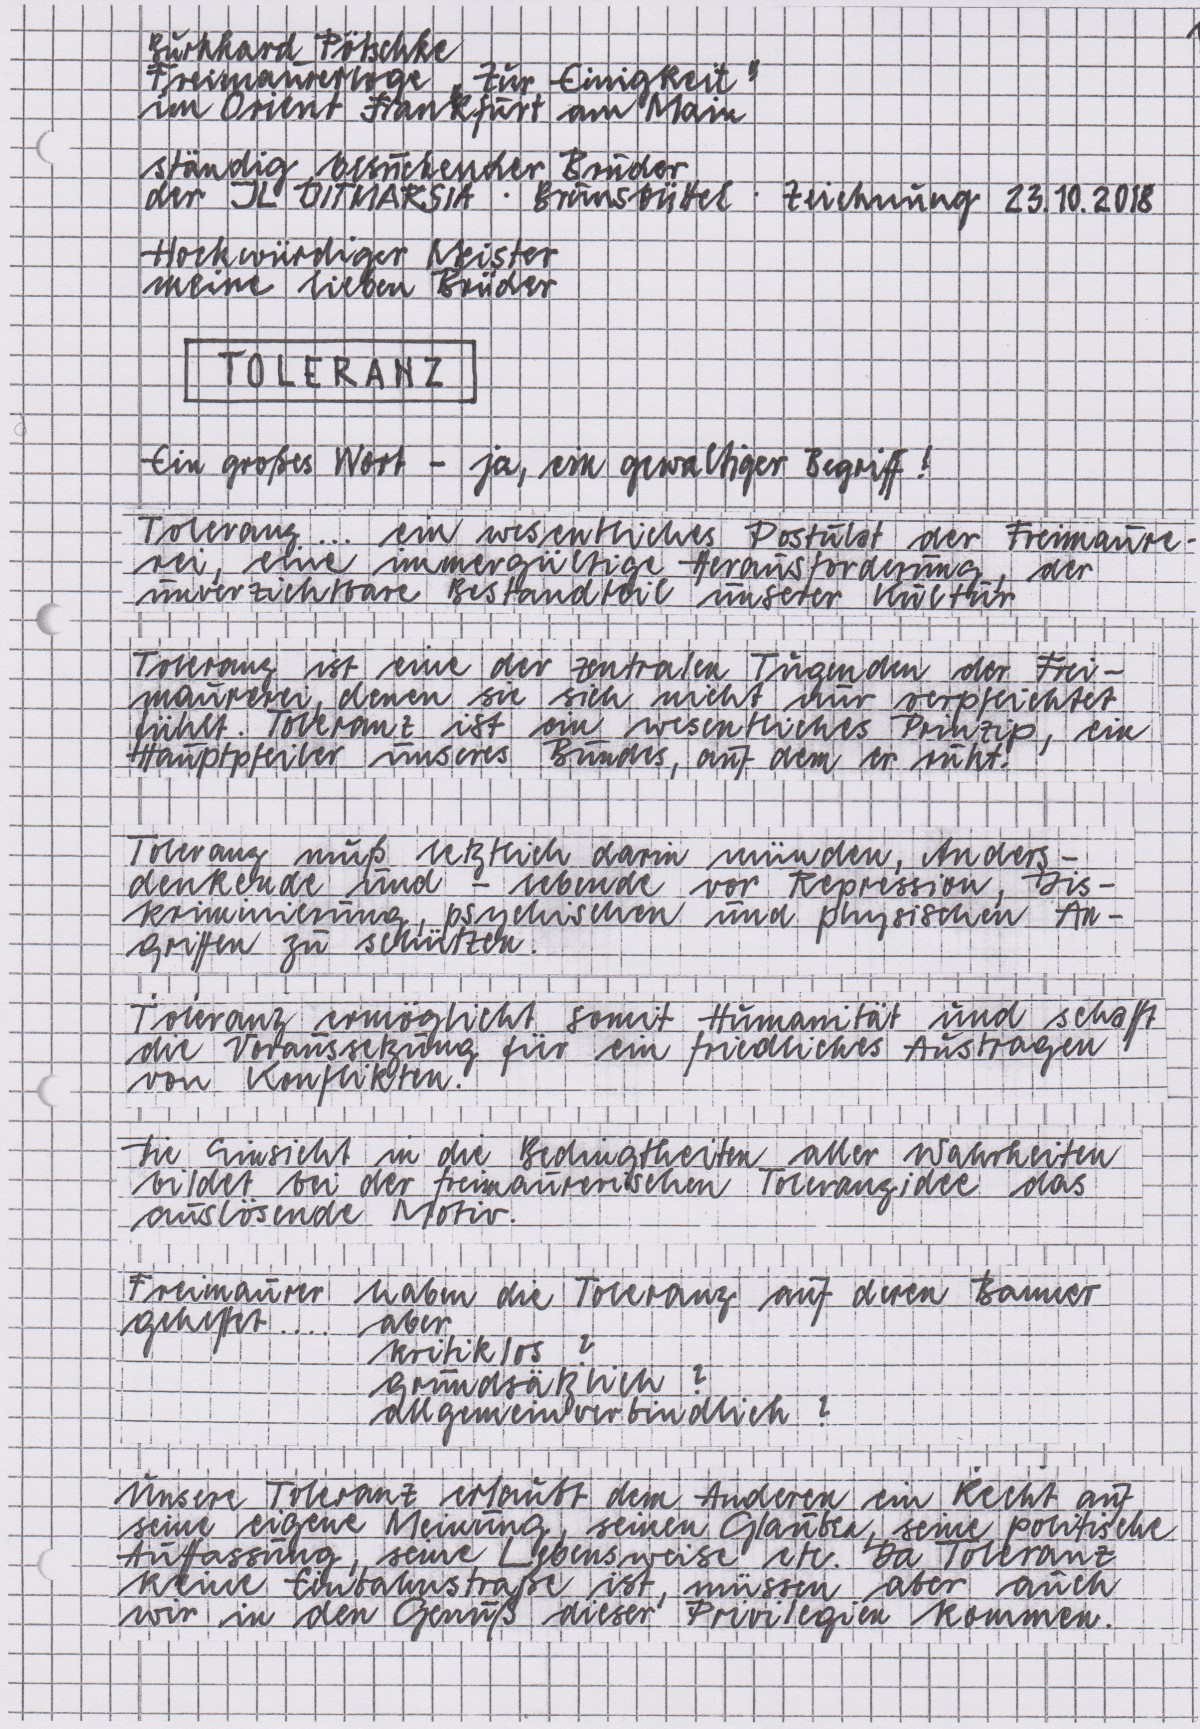 Burkhard Pötschke
Freimaurerloge „Zur Einigkeit"
im Orient Frankfurt am Main
ständig besuchender Bruder
der JL DITMARSIA · Brunsbüttel · Zeichnung 23.10.2018
Hochwürdiger Meister
meine lieben Brüder
TOLERANZ
Ein großes Wort – ja, ein gewaltiger Begriff!
Toleranz ... ein wesentliches Postulat der Freimaure-
rei, eine immergültige Herausforderung, der
unverzichtbare Bestandteil unserer Kultur
Toleranz ist eine der zentralen Tugenden der Frei-
maurerei, denen sie sich nicht nur verpflichtet
fühlt. Toleranz ist ein wesentliches Prinzip, ein
Hauptpfeiler unseres Bundes, auf dem er ruht.
Toleranz muß letztlich darin münden, Anders-
denkende und – lebende vor Repression, Dis-
kriminierung, psychischen und physischen An-
griffen zu schützen.
Toleranz ermöglicht somit Humanität und schafft
die Voraussetzung für ein friedliches Austragen
von Konflikten.
Die Einsicht in die Bedingtheiten aller Wahrheiten
bildet bei der freimaurerischen Toleranzidee das
auslösende Motiv.
Freimaurer haben die Toleranz auf deren Banner
geheftet .... aber
kritiklos ?
grundsätzlich ?
allgemeinverbindlich ?
Unsere Toleranz erlaubt dem Anderen ein Recht auf
seine eigene Meinung, seinen Glauben, seine politische
Auffassung, seine Lebensweise etc. Da Toleranz
keine Einbahnstraße ist, müssen aber auch
wir in den Genuß dieser Privilegien kommen.